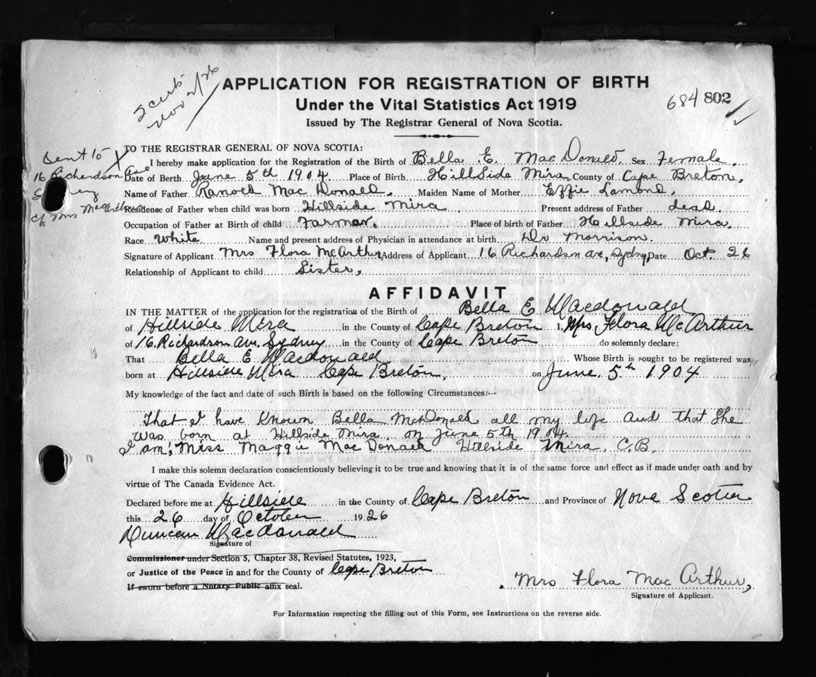 Sent
Nov 2/26
APPLICATION FOR REGISTRATION OF BIRTH
Under the Vital Statistics Act 1919
684 802
Issued by The Registrar General of Nova Scotia.
Sent to
16 Richardson Ave
Sydney
c/o Mrs McArthur
TO THE REGISTRAR GENERAL OF NOVA SCOTIA:
I hereby make application for the Registration of the Birth of Bella E. MacDonald. Sex Female.
Date of Birth June 5th 1904 Place of Birth Hillside Mira County of Cape Breton.
Name of Father Ranold MacDonald. Maiden Name of Mother Effie Lamond.
Residence of Father when child was born Hillside Mira Present address of Father dead.
Occupation of Father at Birth of child Farmar. Place of birth of Father Hillside Mira.
Race White Name and present address of Physician in attendance at birth Dr Morrison.
Signature of Applicant Mrs Flora McArthur Address of Applicant 16 Richardson Ave, Sydney, Date Oct. 26
Relationship of Applicant to child Sister,
AFFIDAVIT
IN THE MATTER of the application for the registration of the Birth of Bella E Macdonald
of Hillside Mira in the County of Cape Breton I, Mrs Flora McArthur
of 16 Richardson Ave. Sydney in the County of Cape Breton do solemnly declare:
That Bella E Macdonald Whose Birth is sought to be registered was
born at Hillside Mira Cape Breton, on June 5th 1904
My knowledge of the fact and date of such Birth is based on the following Circumstances:—
That I have Known Bella McDonald all my life and that She
was born at Hillside Mira, on June 5th 1904.
I am, Miss Maggie MacDonald Hillside Mira. C.B.
I make this solemn declaration conscientiously believing it to be true and knowing that it is of the same force and effect as if made under oath and by
virtue of The Canada Evidence Act.
Declared before me at Hillside in the County of Cape Breton and Province of Nova Scotia
this 26 day of October 1926
Duncan Macdonald
Signature of
Commissioner under Section 5, Chapter 38, Revised Statutes, 1923,
or Justice of the Peace in and for the County of Cape Breton
If sworn before a Notary Public affix seal.
Mrs Flora MacArthur,
Signature of Applicant.
For Information respecting the filling out of this Form, see Instructions on the reverse side.